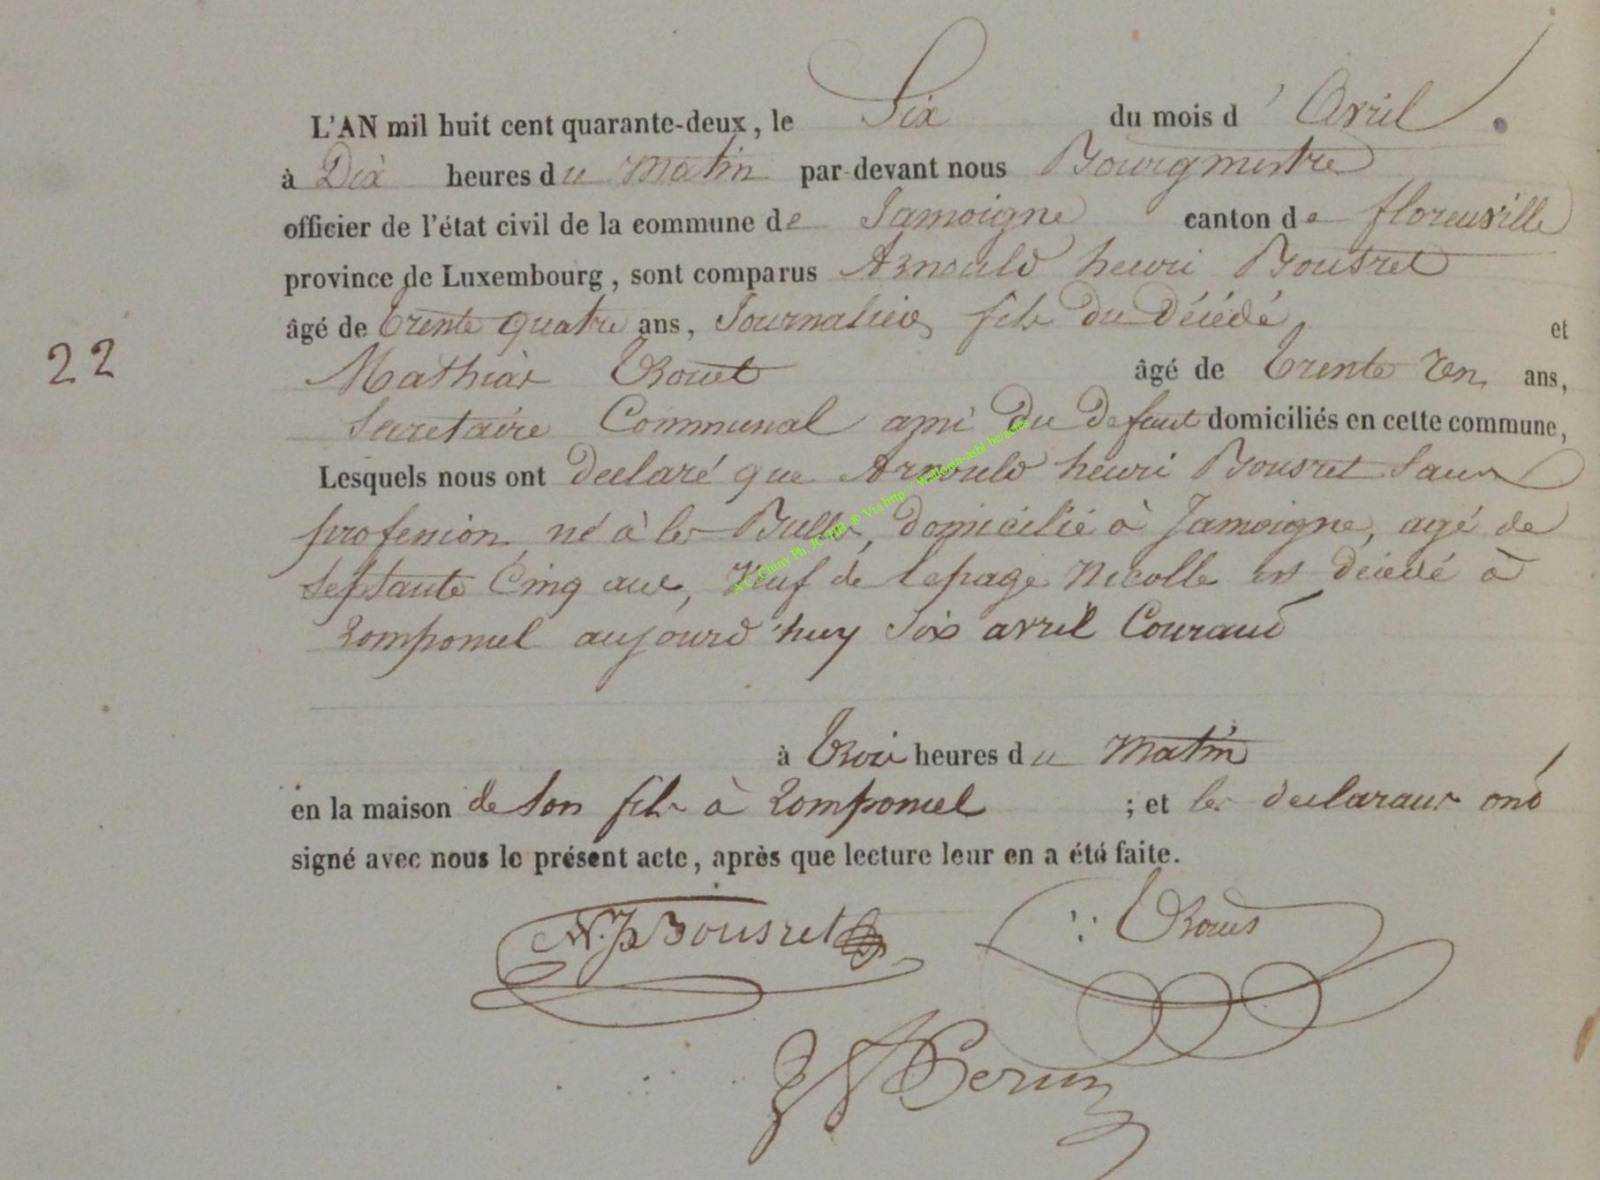 L'AN mil huit cent quarante-deux, le Six du mois d'Avril.
à Dix heures du Matin par-devant nous Bourgmestre
officier de l'état civil de la commune de Jamoigne canton de florenville
province de Luxembourg, sont comparus Arnould henri Bousret
âgé de trente quatre ans, Journalier, fils du Décédé, et
22
Mathias âgé de trente ans,
Secretaire Communal ami du defunt domiciliés en cette commune,
Lesquels nous ont declaré que Arnould henri Bousret Sans
profession né à les Bulles, domicilié à Jamoigne, agé de
Septante Cinq ans, Veuf de Lepage Nicolle est décédé à
Romponcel aujourd'huy Six avril Courant
à trois heures du Matin
en la maison de Son fils à Romponcel ; et les declarans ont
signé avec nous le présent acte, après que lecture leur en a été faite.
Bousret